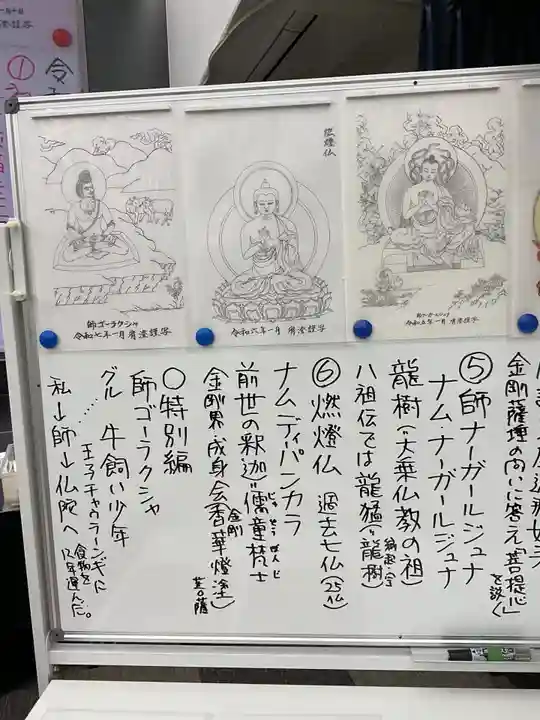 燃燈仏
師ゴーラクシャ
令和七年一月
令和六年一月
令和五年一月
金剛薩埵の問いに答え「菩提心」を説く
⑤師ナーガールジュナ
ナム・ナーガールジュナ
龍樹(=大乗仏教の祖)
八祖伝では龍猛(=龍樹)
⑥燃燈仏 過去七仏(25仏)
ナム・ディーパンカラ
前世の釈迦=儒童梵士
じゅ どう ぼん じ
金剛界成身会香華燈塗
金剛
菩薩
〇特別編
師ゴーラクシャ
グル 牛飼い少年
王子チャウラーンギに
食物を
12年運んだ。
私→師→仏院へ